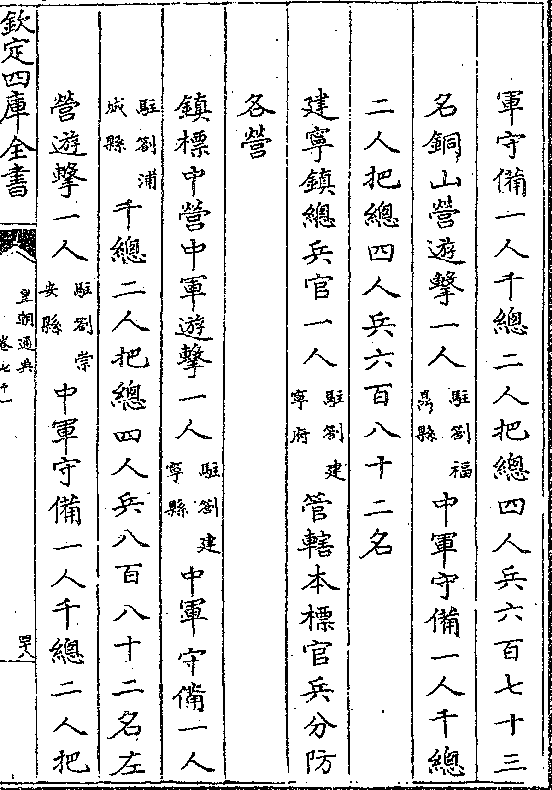 軍守備一人千總二人把總四人兵六百七十三
名銅山營遊擊一人駐劄福鼎縣中軍守備一人千總
二人把總四人兵六百八十二名
建寧鎮總兵官一人駐劄建寧府管轄本標官兵分防
各營
鎮標中營中軍遊擊一人駐劄建寧縣中軍守備一人
駐劄浦城縣千總二人把總四人兵八百八十二名左
營遊擊一人駐劄崇安縣中軍守備一人千總二人把
欽定四庫全書
皇朝通典
卷七十一